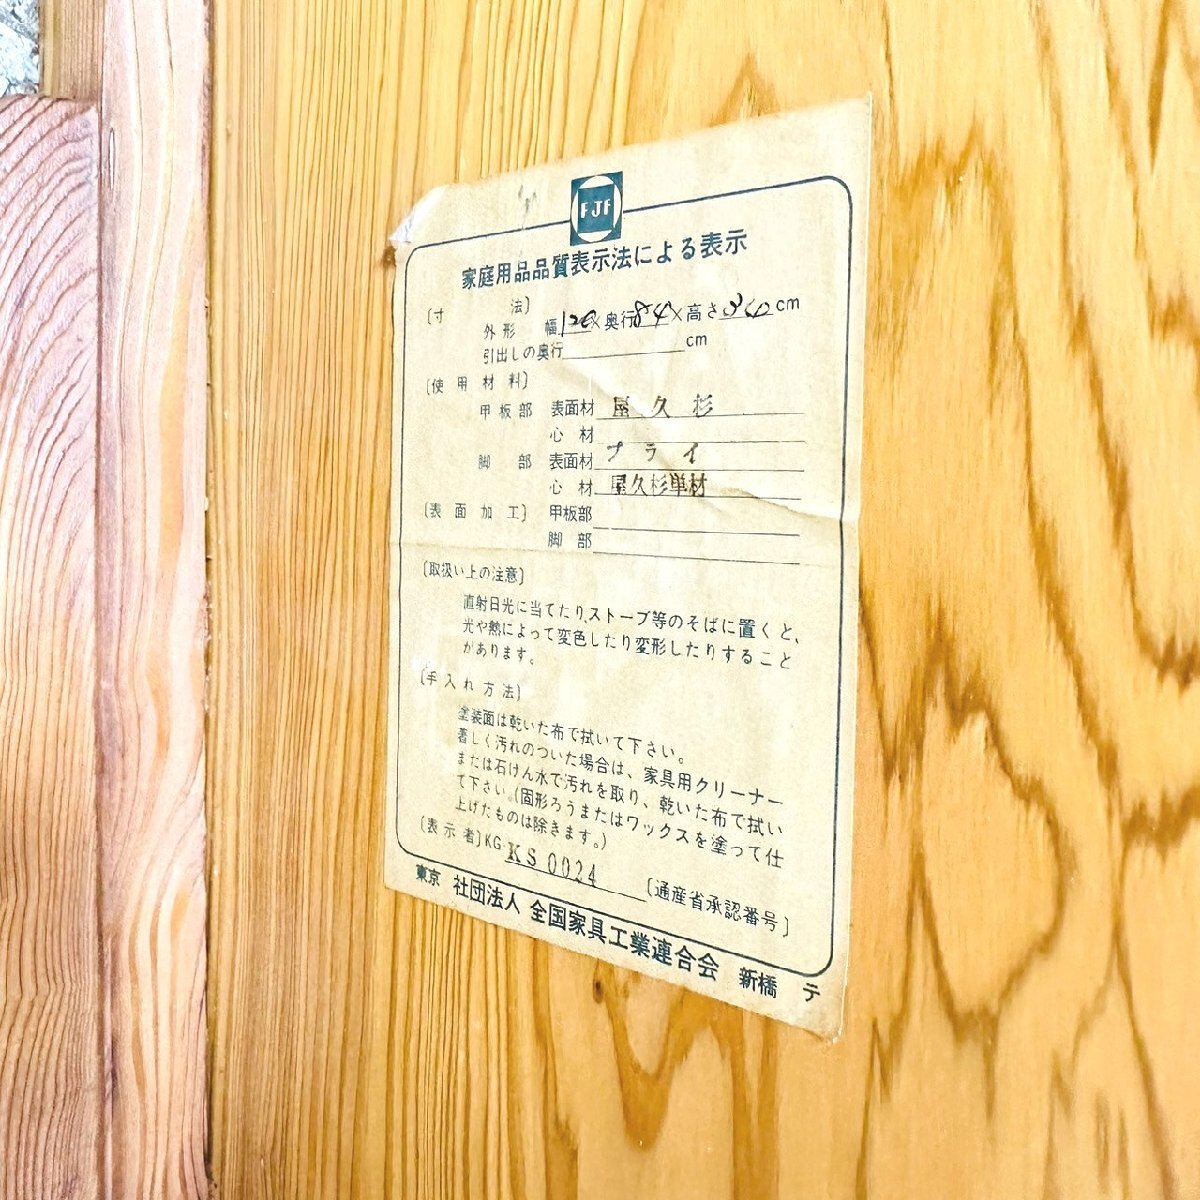 FJF
家庭用品品質表示法による表示
〔寸法〕
外形 幅120×奥行84×高さ340cm
引出しの奥行 cm
〔使用材料〕
甲板部 表面材 屋久杉
心材
脚部 表面材 プライ
心材 屋久杉単材
〔表面加工〕 甲板部
脚部
〔取扱い上の注意〕
直射日光に当てたり、ストーブ等のそばに置くと、
光や熱によって変色したり変形したりすること
があります。
〔手入れ方法〕
塗装面は乾いた布で拭いて下さい。
著しく汚れのついた場合は、家具用クリーナー
または石けん水で汚れを取り、乾いた布で拭い
て下さい。(固形ろうまたはワックスを塗って仕
上げたものは除きます。)
〔表示者〕KG-KS 0024 〔通産省承認番号〕
東京 社団法人 全国家具工業連合会 新橋 テ